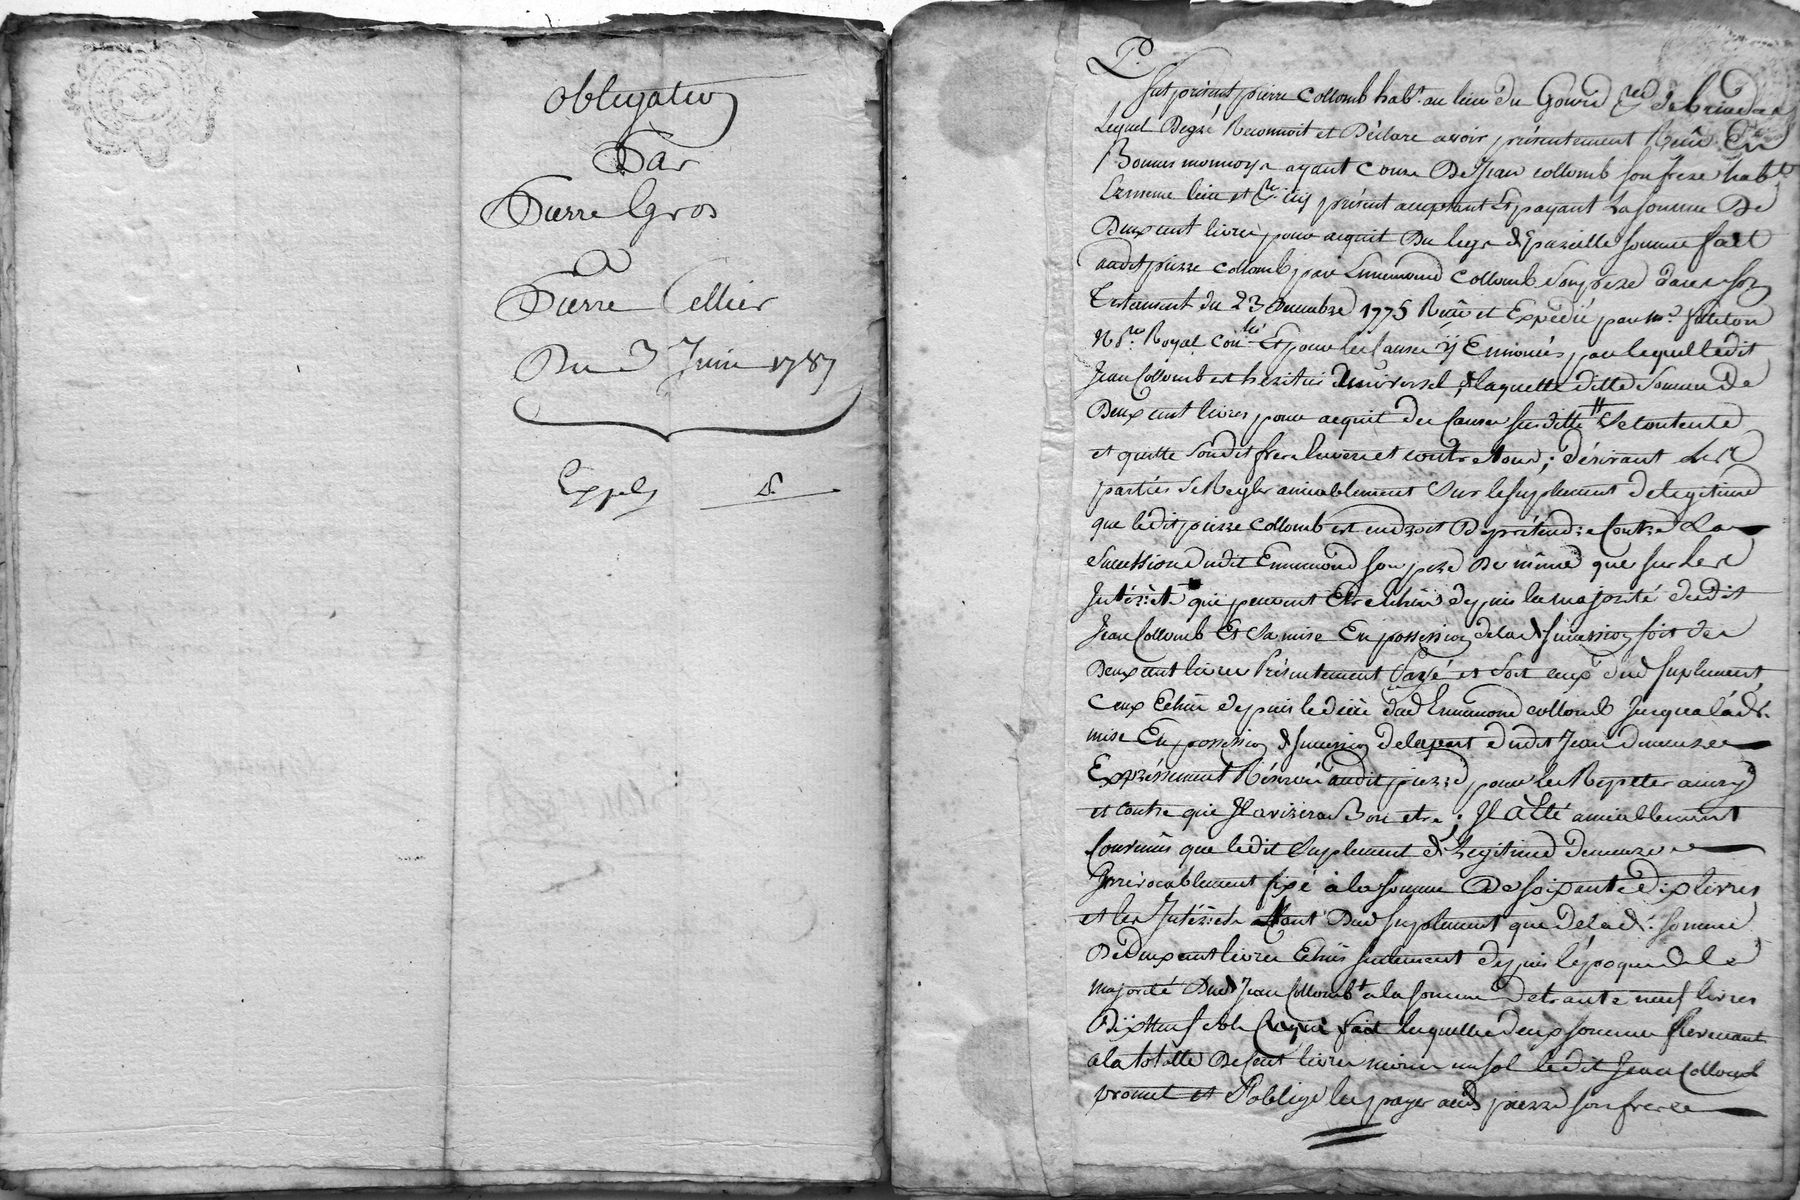 obligation
Par
Pierre Gros
A
Pierre Cellier
Du 3 Juin 1787
Expe
Fut présent pierre Collomb habt. au lieu du
Lequel Degré Reconnoit et Déclare avoir présentement Reçu En
Bonnes monnoye ayant Cours De Jean collomb son frere habt.
Et meme lieu et présent acceptant Et payant La somme De
Deux cent livres pour acquit Du legs d pareille somme fait
audit pierre collomb par Ennemond Collomb Son pere dans son
Testament du 23 1775 Reçu et Expédié par me.
Nre. Royal Et pour les Causes y Enoncés, par lequel ledit
Jean Collomb est heritier Universel, de laquelle ditte Somme De
Deux cent livres pour acquit des Causes sus ditte Se Contente
et quitte Son dit frere Envers et contre tous; désirant les
parties Se Regler amiablement Sur le Suplement de legitime
que ledit pierre Collomb est en droit De prétendre Contre La
Succession dudit Ennemond Son pere De même que sur les
Intérêts qui peuvent Etre Echus depuis la majorité dudit
Jean Collomb Et Sa mise En possession de lad succession soit des
Deux cent livres Présentement Payé et Soit ceux dud Suplement
Ceux Echus depuis le décès dud Ennemond collomb Jusqua lad.
mise En possession d succession de la part dudit Jean demeurse
Expressement Réservé audit pierre, pour les Repeter ainsy
et contre qui Il avisera Bon etre; Il a Eté amiablement
Convenus que ledit Suplement d Legitime demeure
Irrévocablement fixé à la somme De soixante dix livres
et les Intérêts tant Dud Suplement que de lad. somme
De Deux cent livres Echus seulement depuis l'époque De la
majorité Dud Jean Collomb a la somme De trante neuf livres
Dix Neuf sols fait lesquelles deux sommes Revenant
a la totalle De Cent livres moins un sol ledit Jean Collomb
promet et S'oblige les payer aud pierre son frere